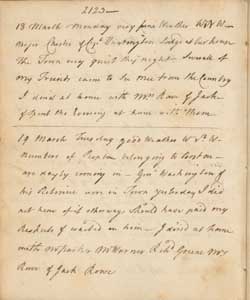 2123—
18 March Monday very fine Weather W & W—
Major Chester & Capt Huntington Lodge at our house
the Town very quiet this night. Severale of
my Friends came to See me from the Country
I dined at home with Mrs Rowe & Jack
& Spent the Evening at home with them
19 March Tuesday good Weather W & W
Numbers of People belonging to Boston
are dayly coming in — Genl Washington &
his Retinue were in Town yesterday I did
not hear of it otherways Should have paid my
Respects & waited on him — I dined at home
with Mr Parker Mr Warner Richd Greene Mrs
Rowe & Jack Rowe